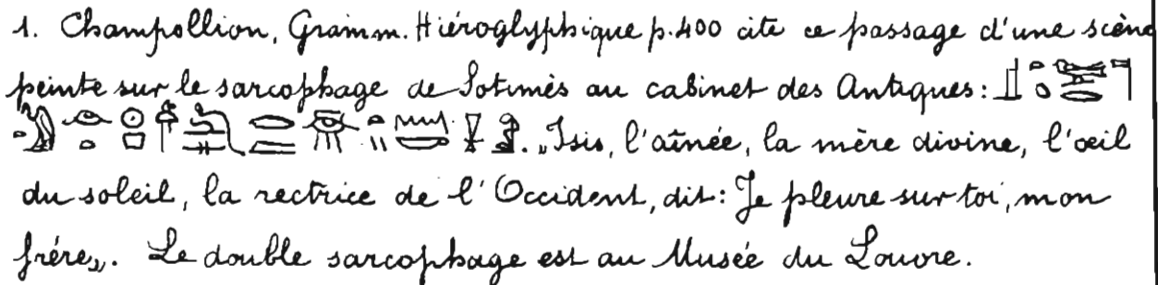 1. Champollion, Gramm. Hiéroglyphique p. 400 cite ce passage d'une scène
peinte sur le sarcophage de Sotimès au cabinet des Antiques:
. „Isis, l'aînée, la mère divine, l'œil
du soleil, la rectrice de l'Occident, dit: Je pleure sur toi, mon
frére„. Le double sarcophage est au Musée du Louvre.